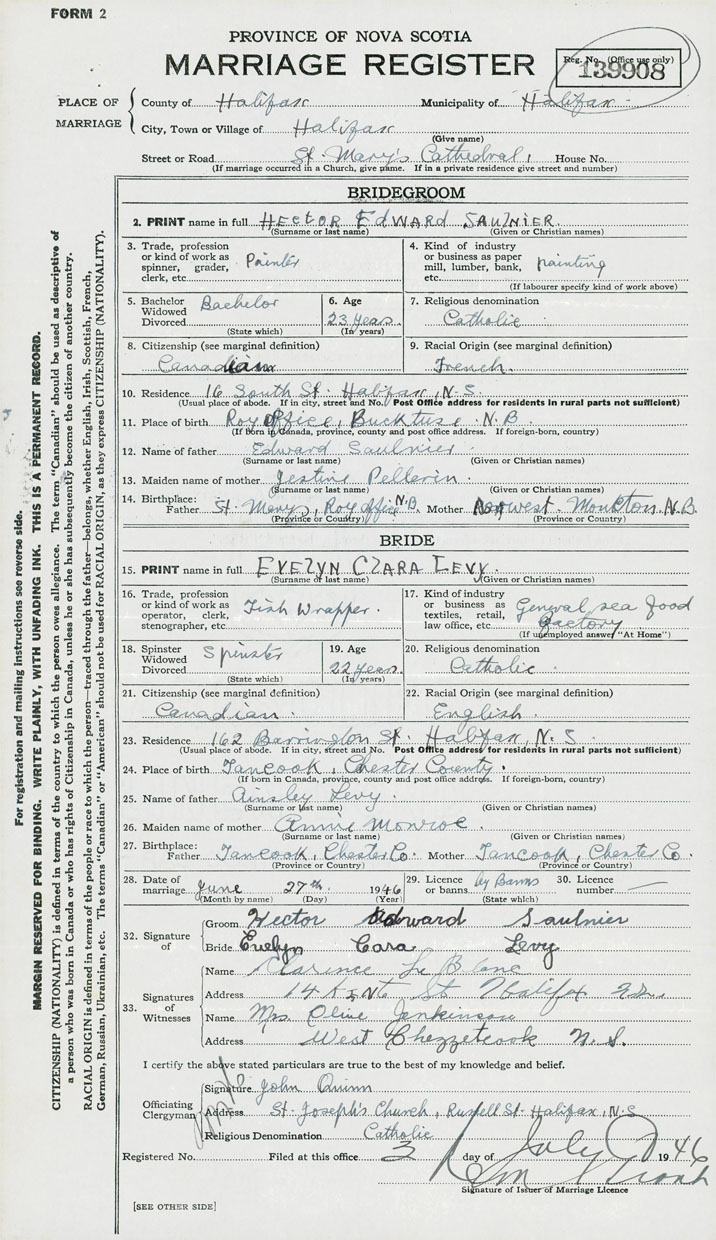 FORM 2
PROVINCE OF NOVA SCOTIA
MARRIAGE REGISTER
Reg. No. (Office use only)
139908
PLACE OF MARRIAGE
County of Halifax Municipality of Halifax
City, Town or Village of Halifax
(Give name)
Street or Road St. Mary's Cathedral, House No.
(If marriage occurred in a Church, give name. If in a private residence give street and number)
BRIDEGROOM
2. PRINT name in full HECTOR EDWARD SAULNIER.
(Surname or last name) (Given or Christian names)
3. Trade, profession or kind of work as spinner, grader, clerk, etc. Painter
4. Kind of industry or business as paper mill, lumber, bank, etc. painting
(If labourer specify kind of work above)
5. Bachelor Widowed Divorced Bachelor
(State which)
6. Age 23 years.
(In years)
7. Religious denomination
Catholic
8. Citizenship (see marginal definition)
Canadian
9. Racial Origin (see marginal definition)
French.
10. Residence 16 South St. Halifax, N.S.
(Usual place of abode. If in city, street and No. Post Office address for residents in rural parts not sufficient)
11. Place of birth Roy Office, Bucktuse N.B.
(If born in Canada, province, county and post office address. If foreign-born, country)
12. Name of father Edward Saulnier
(Surname or last name) (Given or Christian names)
13. Maiden name of mother Jestine Pellerin
(Surname or last name) (Given or Christian names)
14. Birthplace: Father St. Mary's, Roy office N.B. Mother Norwest. Moukton. N.B.
(Province or Country) (Province or Country)
BRIDE
15. PRINT name in full EVELYN CLARA LEVY.
(Surname or last name) (Given or Christian names)
16. Trade, profession or kind of work as operator, clerk, stenographer, etc. Fish Wrapper.
17. Kind of industry or business as textiles, retail, law office, etc. General sea food factory
(If unemployed answer "At Home")
18. Spinster Widowed Divorced Spinster
(State which)
19. Age 22 years.
(In years)
20. Religious denomination
Catholic
21. Citizenship (see marginal definition)
Canadian.
22. Racial Origin (see marginal definition)
English.
23. Residence 162 Barrington St. Halifax, N.S.
(Usual place of abode. If in city, street and No. Post Office address for residents in rural parts not sufficient)
24. Place of birth Tancook, Chester County.
(If born in Canada, province, county and post office address. If foreign-born, country)
25. Name of father Ainsley Levy.
(Surname or last name) (Given or Christian names)
26. Maiden name of mother Annie Monroe.
(Surname or last name) (Given or Christian names)
27. Birthplace: Father Tancook, Chester Co. Mother Tancook, Chester Co.
(Province or Country) (Province or Country)
28. Date of marriage June 27th. 1946
(Month by name) (Day) (Year)
29. Licence or banns by Banns
(State which)
30. Licence number —
32. Signature of
Groom Hector Edward Saulnier
Bride Evelyn Cara Levy
33. Signatures of Witnesses
Name Clarence Le Blanc
Address 14 KENT St Halifax
Name Mrs. Olive Jenkinson
Address West Chezzetcook N.S.
I certify the above stated particulars are true to the best of my knowledge and belief.
Officiating Clergyman
Signature John Quinn
Address St. Joseph's Church, Russell St. Halifax, N.S.
Religious Denomination Catholic
Registered No. Filed at this office 3 day of July 1946
Signature of Issuer of Marriage Licence
[SEE OTHER SIDE]
For registration and mailing instructions see reverse side.
MARGIN RESERVED FOR BINDING. WRITE PLAINLY, WITH UNFADING INK. THIS IS A PERMANENT RECORD.
CITIZENSHIP (NATIONALITY) is defined in terms of the country to which the person owes allegiance. The term "Canadian" should be used as descriptive of
a person who was born in Canada or who has rights of Citizenship in Canada, unless he or she has subsequently become the citizen of another country.
RACIAL ORIGIN is defined in terms of the people or race to which the person—traced through the father—belongs, whether English, Irish, Scottish, French,
German, Russian, Ukrainian, etc. The terms "Canadian" or "American" should not be used for RACIAL ORIGIN, as they express CITIZENSHIP (NATIONALITY).